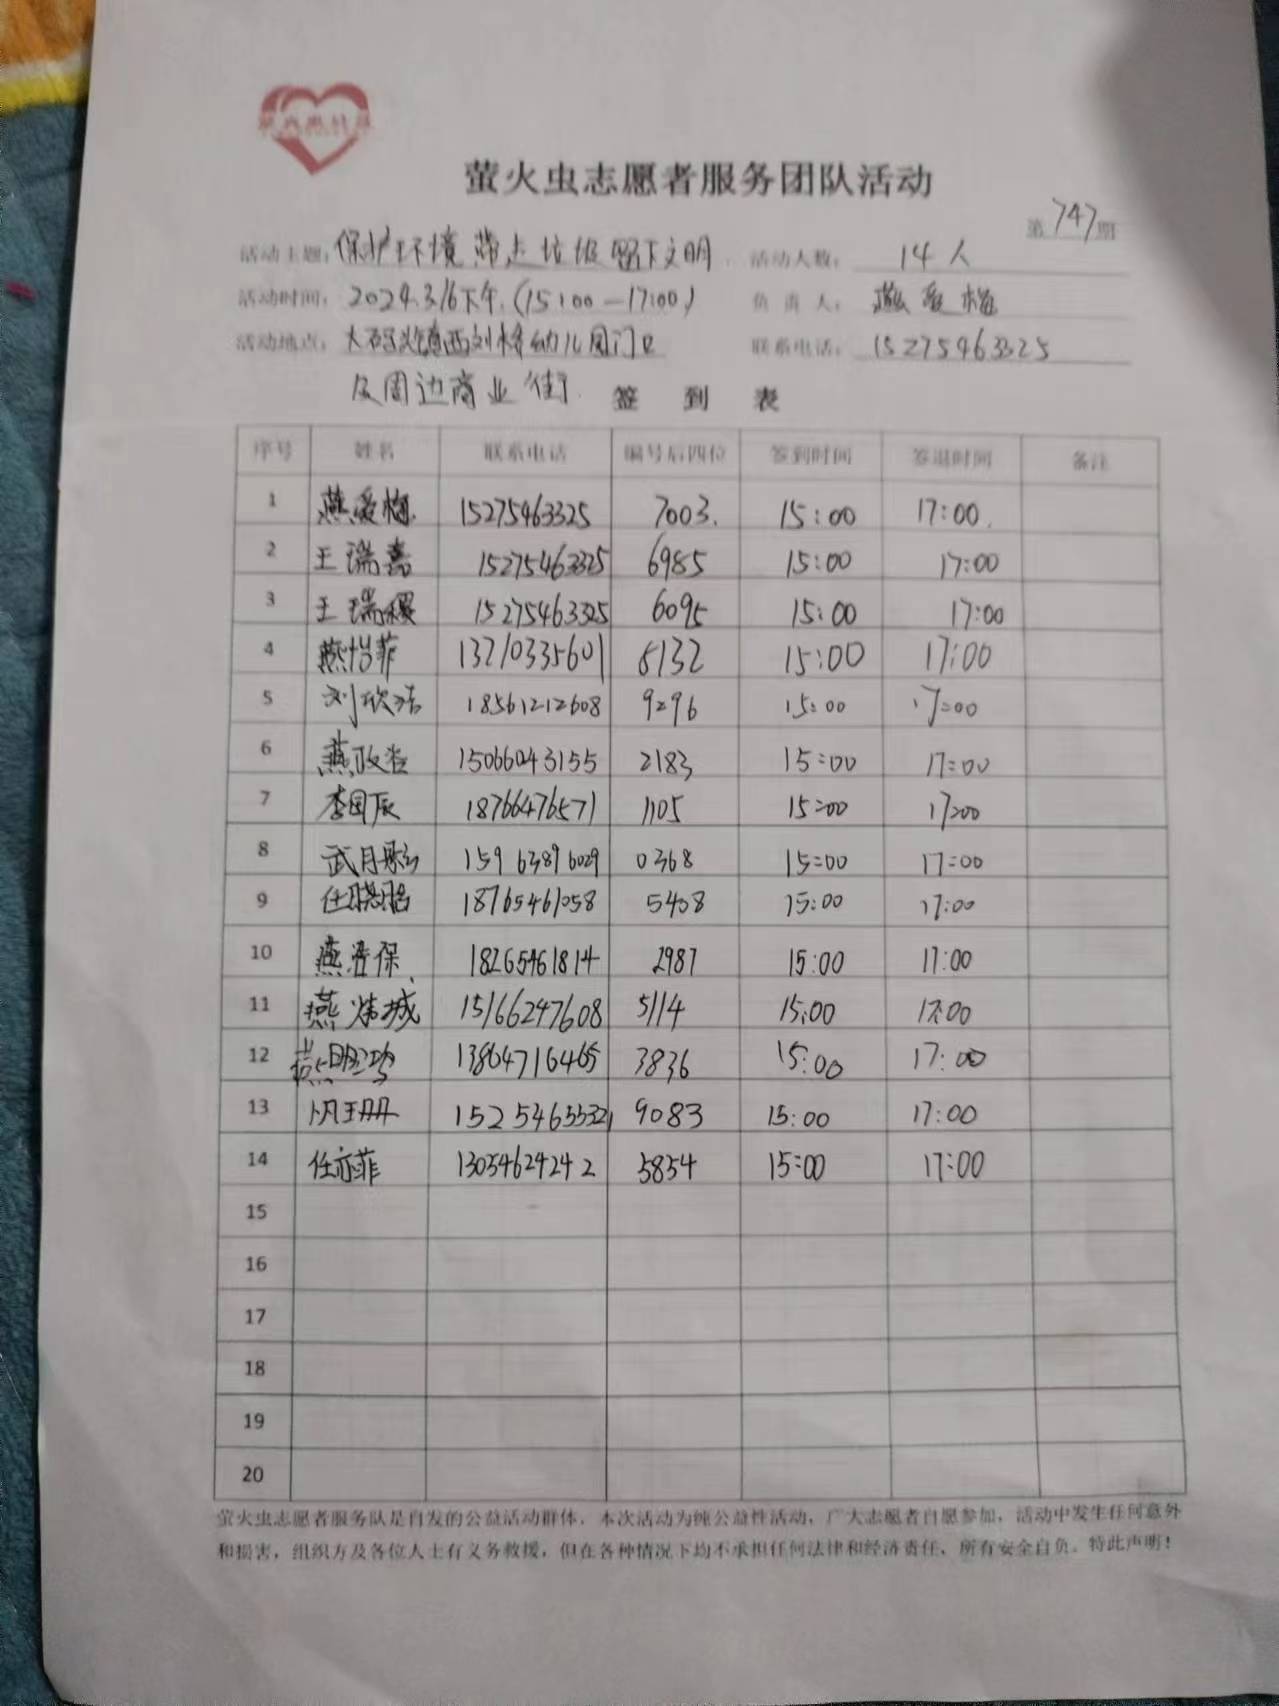 萤火虫志愿者服务团队活动
第747期
活动主题：保护环境 带走垃圾 留下文明 活动人数：14人
活动时间：2024.3.16下午.(15:00—17:00) 负责人：燕爱梅
活动地点：大码头镇西刘桥幼儿园门口 联系电话：15275463325
及周边商业街.
签到表
序号 姓名 联系电话 编号后四位 签到时间 签退时间 备注
1 燕爱梅 15275463325 7003. 15:00 17:00.
2 王瑞嘉 15275463325 6985 15:00 17:00
3 王瑞稷 15275463325 6095 15:00 17:00
4 燕怡菲 13210335601 8132 15:00 17:00
5 刘欣洁 18561212608 9296 15:00 17:00
6 燕政 15066043155 2183 15:00 17:00
7 李国辰 18766476571 1105 15:00 17:00
8 武月 15963896029 0368 15:00 17:00
9 任晓 18765461058 5408 15:00 17:00
10 燕保 18265461814 2987 15:00 17:00
11 燕炜城 15166247608 5114 15:00 17:00
12 燕明 13864716465 3836 15:00 17:00
13 15254655321 9083 15:00 17:00
14 任亦菲 13054624242 5854 15:00 17:00
15
16
17
18
19
20
萤火虫志愿者服务队是自发的公益活动群体，本次活动为纯公益性活动，广大志愿者自愿参加，活动中发生任何意外
和损害，组织方及各位人士有义务救援，但在各种情况下均不承担任何法律和经济责任，所有安全自负。特此声明！